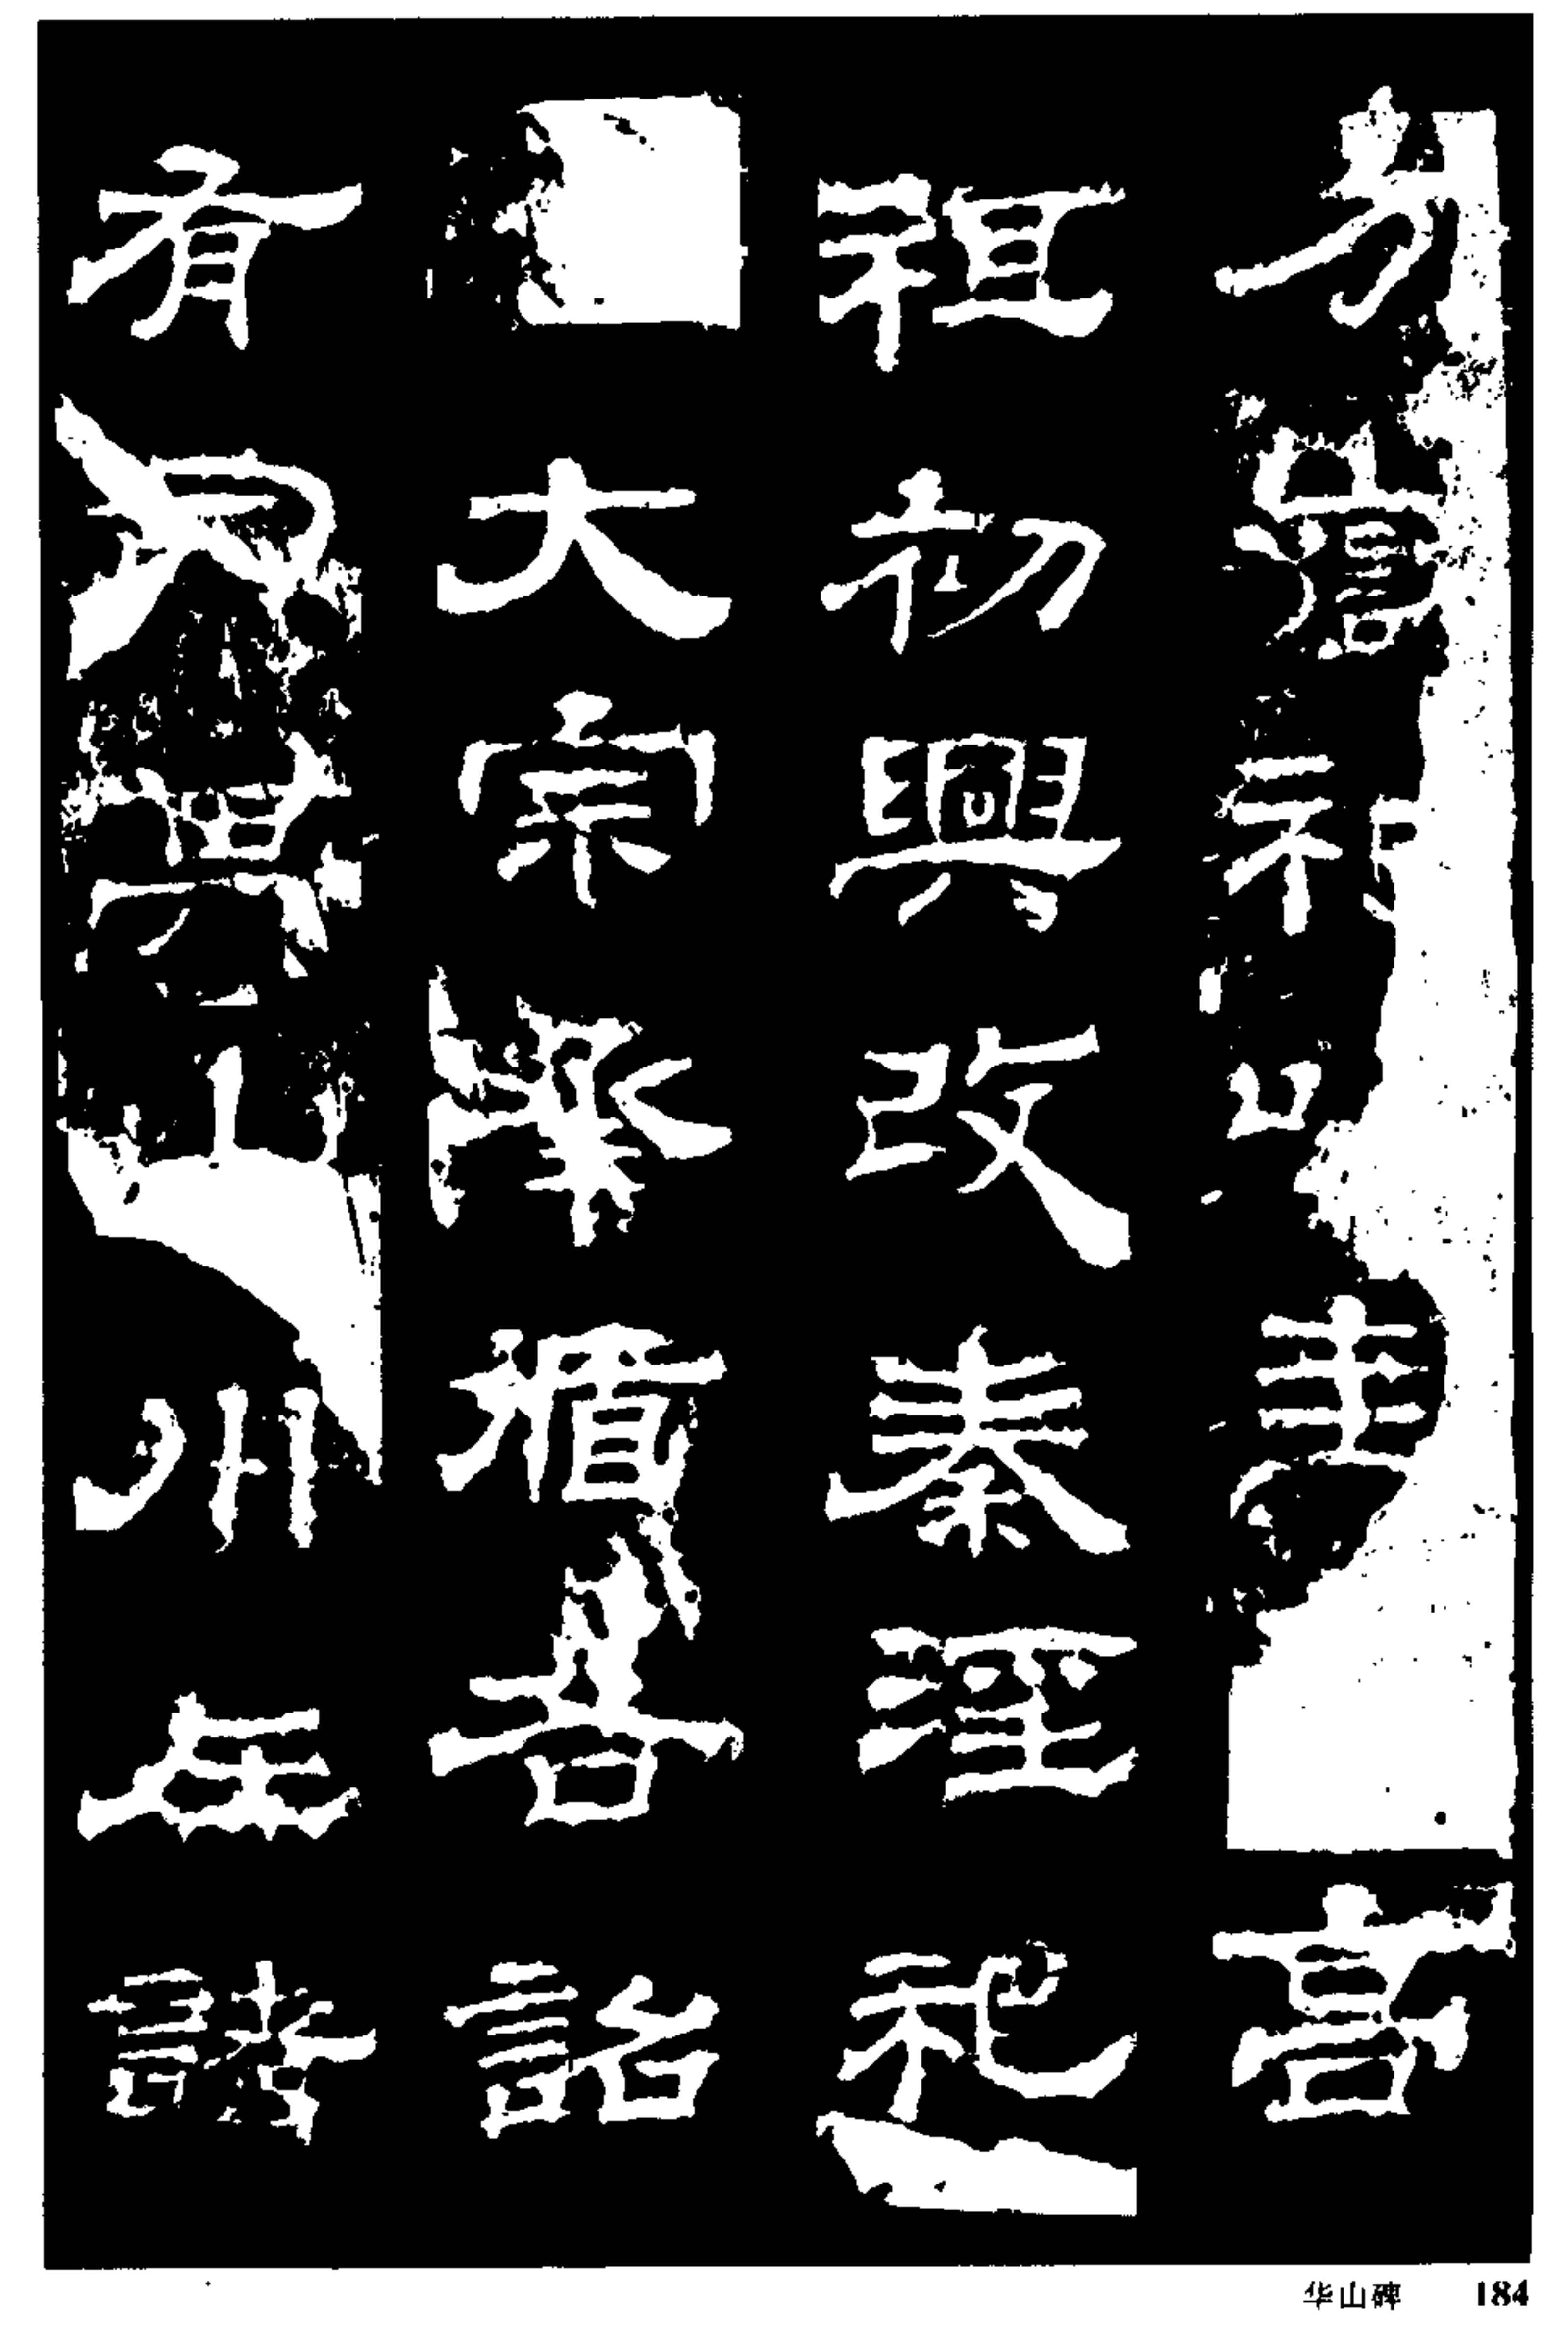 方嶽祀以高
祖初興改秦淫祀
大宗承循各詔
有司其山川在諸
华山碑 184